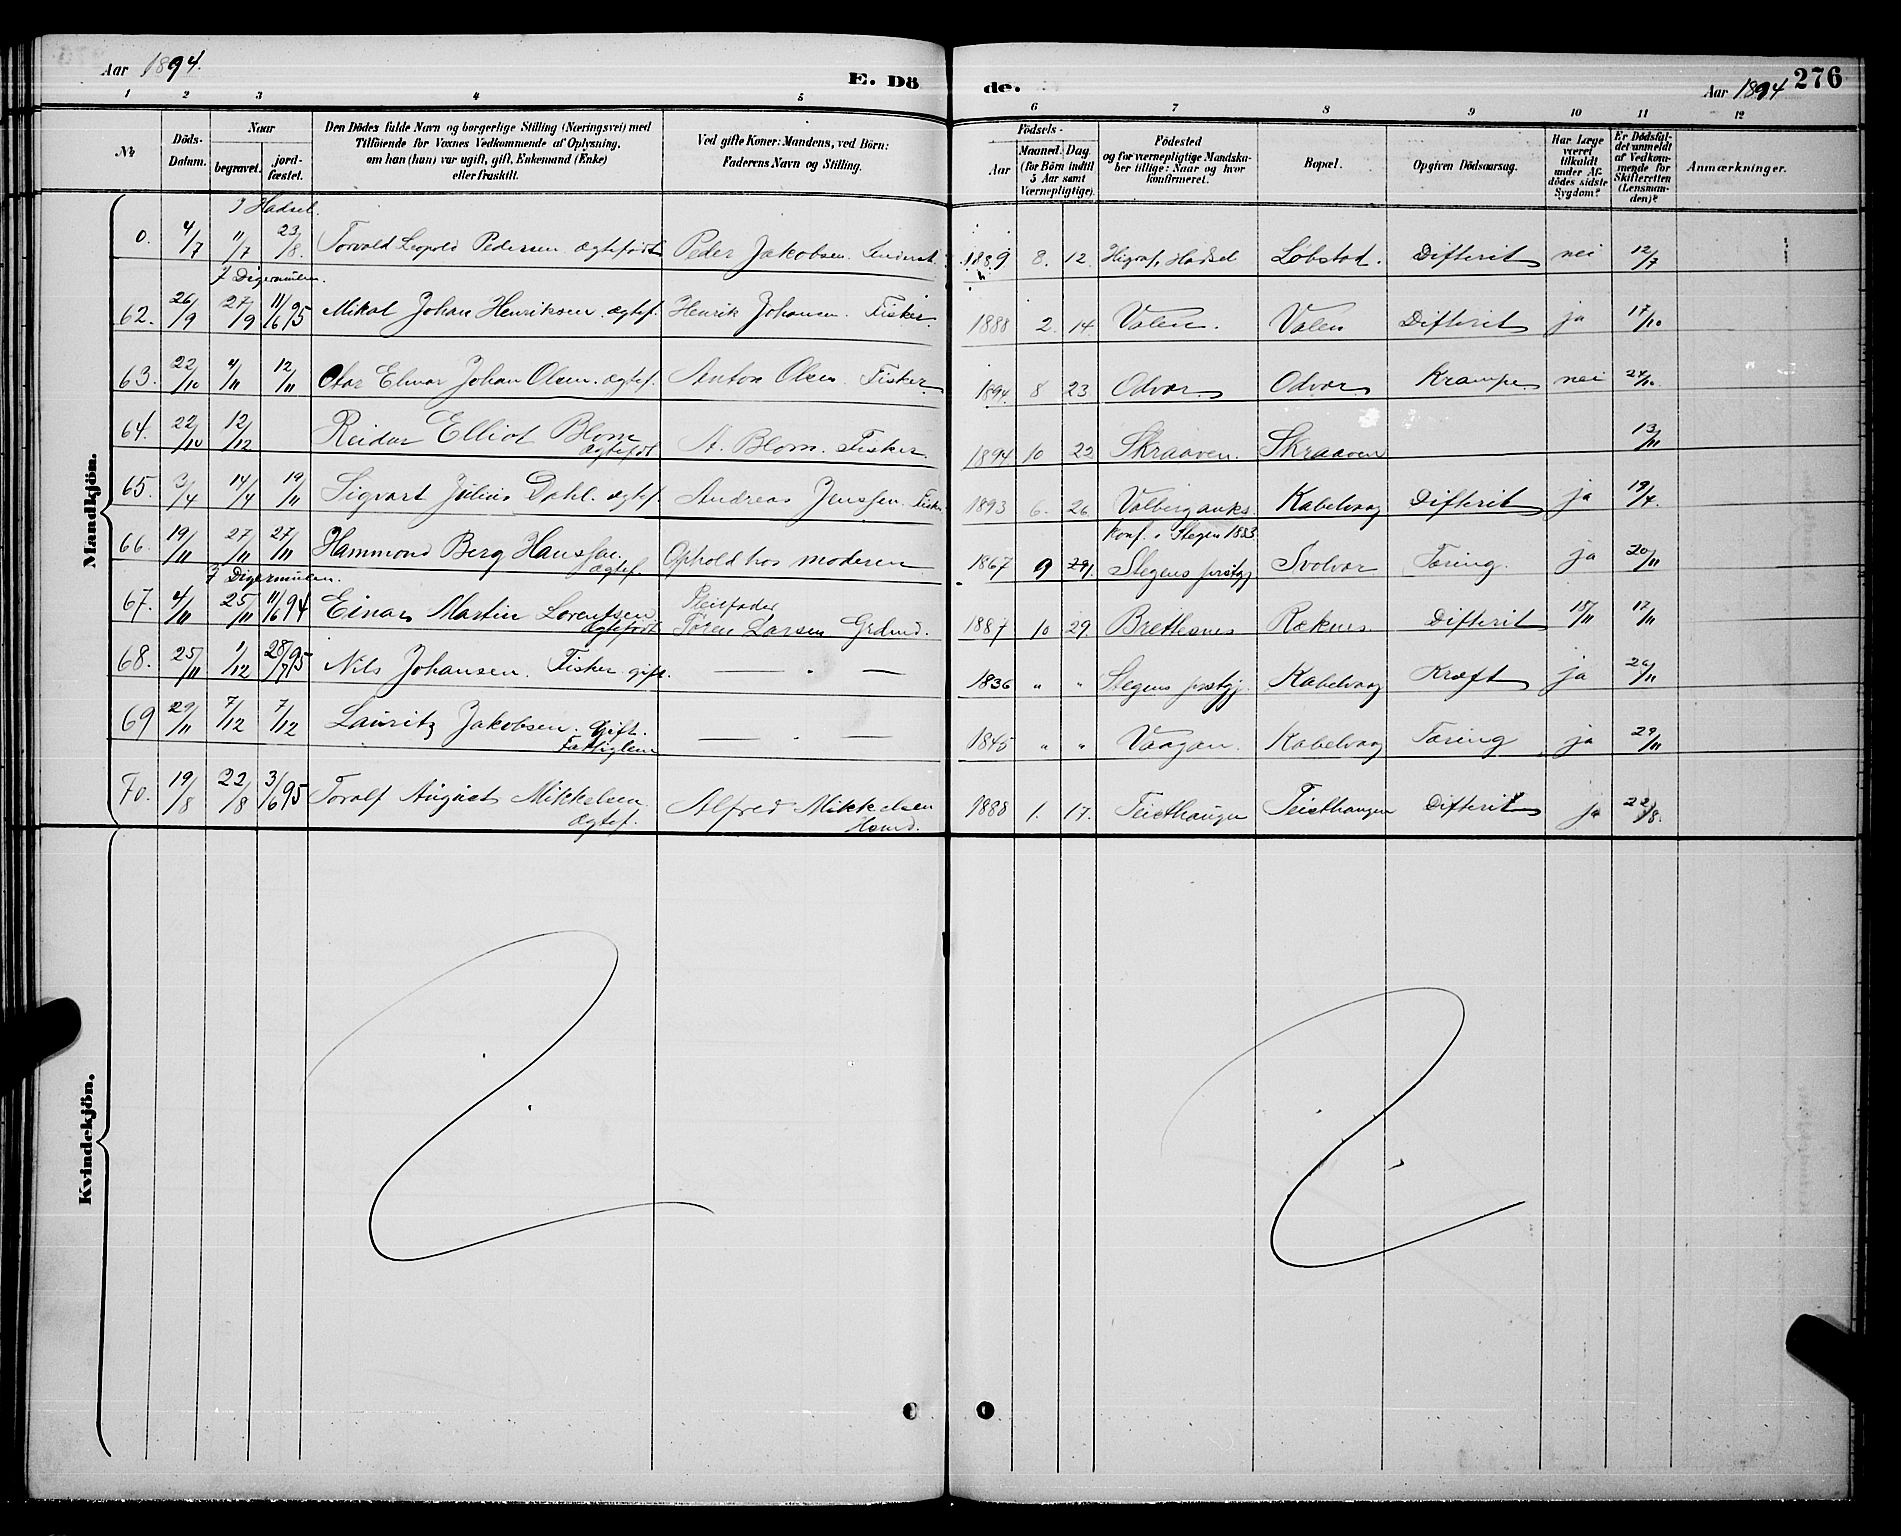 Aar 1894. E. Dö de. Aar 1894 276
1 2 3 4 5 6 7 8 9 10 11 12
No.
Döds-Datum.
Naar
begravet.
jord-fæstet.
Den Dödes fulde Navn og borgerlige Stilling (Næringsvei) med
Tilföiende for Voxnes Vedkommende af Oplysning,
om han (hun) var ugift, gift, Enkemand (Enke)
eller fraskilt.
Ved gifte Koner: Mandens, ved Börn:
Faderens Navn og Stilling.
Födsels-
Aar
Maaned. Dag
(for Börn indtil
5 Aar samt
Værnepligtige).
Födested
og for værnepligtige Mandska-
ber tillige: Naar og hvor
konfirmeret.
Bopæl.
Opgiven Dödsaarsag.
Har Læge
været
tilkaldt
under Af-
dödes sidste
Sygdom?
Er Dödsfal-
det anmeldt
af Vedkom-
mende for
Skifteretten
(Lensman-
den)?
Anmærkninger.
Mandkjön.
I Hadsel.
0. 4/7 11/7 23/8. Torvald Leopold Pedersen ægtefödt Peder Jakobsen 1889 8. 12. Hadsel Löbstad. Difterit nei 12/7
I Digermulen.
62. 26/9 27/9 11/6 95 Mikal Johan Henriksen ægtef. Henrik Johansen. Fisker. 1888 2. 14. Valen. Valen Difterit ja 17/10
63. 22/10 4/11 12/11 Otar Elmar Johan Olsen. ægtef. Anton Olsen Fisker 1894. 8 23. Odvær Odvær Krampe nei 24/10.
64. 22/10 12/12 Reidar Elliot Blom
ægtefödt A. Blom. Fisker 1894 10 22 Skraaven. Skraaven 13/11
65. 3/4 14/4 19/11 Sigvart Julius Dahl. ægtef. Andreas Jenssen. Fisker 1893 6. 26 Kabelvaag Difterit ja 19/4.
konf. i Stegen 1883
66. 19/11 27/11 27/11 Hammond Berg Hanssen.
ægtef. Ophold hos moderen 1867 9 29/. Stegens prstgj Svolvær Tæring. ja 20/11
I Digermulen.
67. 4/11 25/11 11/6 94 Einar Martin Lorentsen
ægtefödt Pleifader
Tören Larsen Grdmd. 1887 10 29. Brettesnes Ræknes Difterit 15/11 17/11
68. 25/11 1/12 28/7 95 Nils Johansen. Fisker gift. — " — 1836 " " Stegens prstgj. Kabelvaag Kræft ja 29/11
69 29/11 7/12 7/12 Lauritz Jakobsen. Gift.
Fattiglem — " — 1845 " " Vaagan. Kabelvaag Tæring ja 29/11
70. 19/8 22/8 3/6 95 Toralf August Mikkelsen
ægtef. Alfred Mikkelsen
Hsmd. 1888 1. 17. Teisthaugen Teisthaugen Difterit ja 22/8.
Kvindekjön.